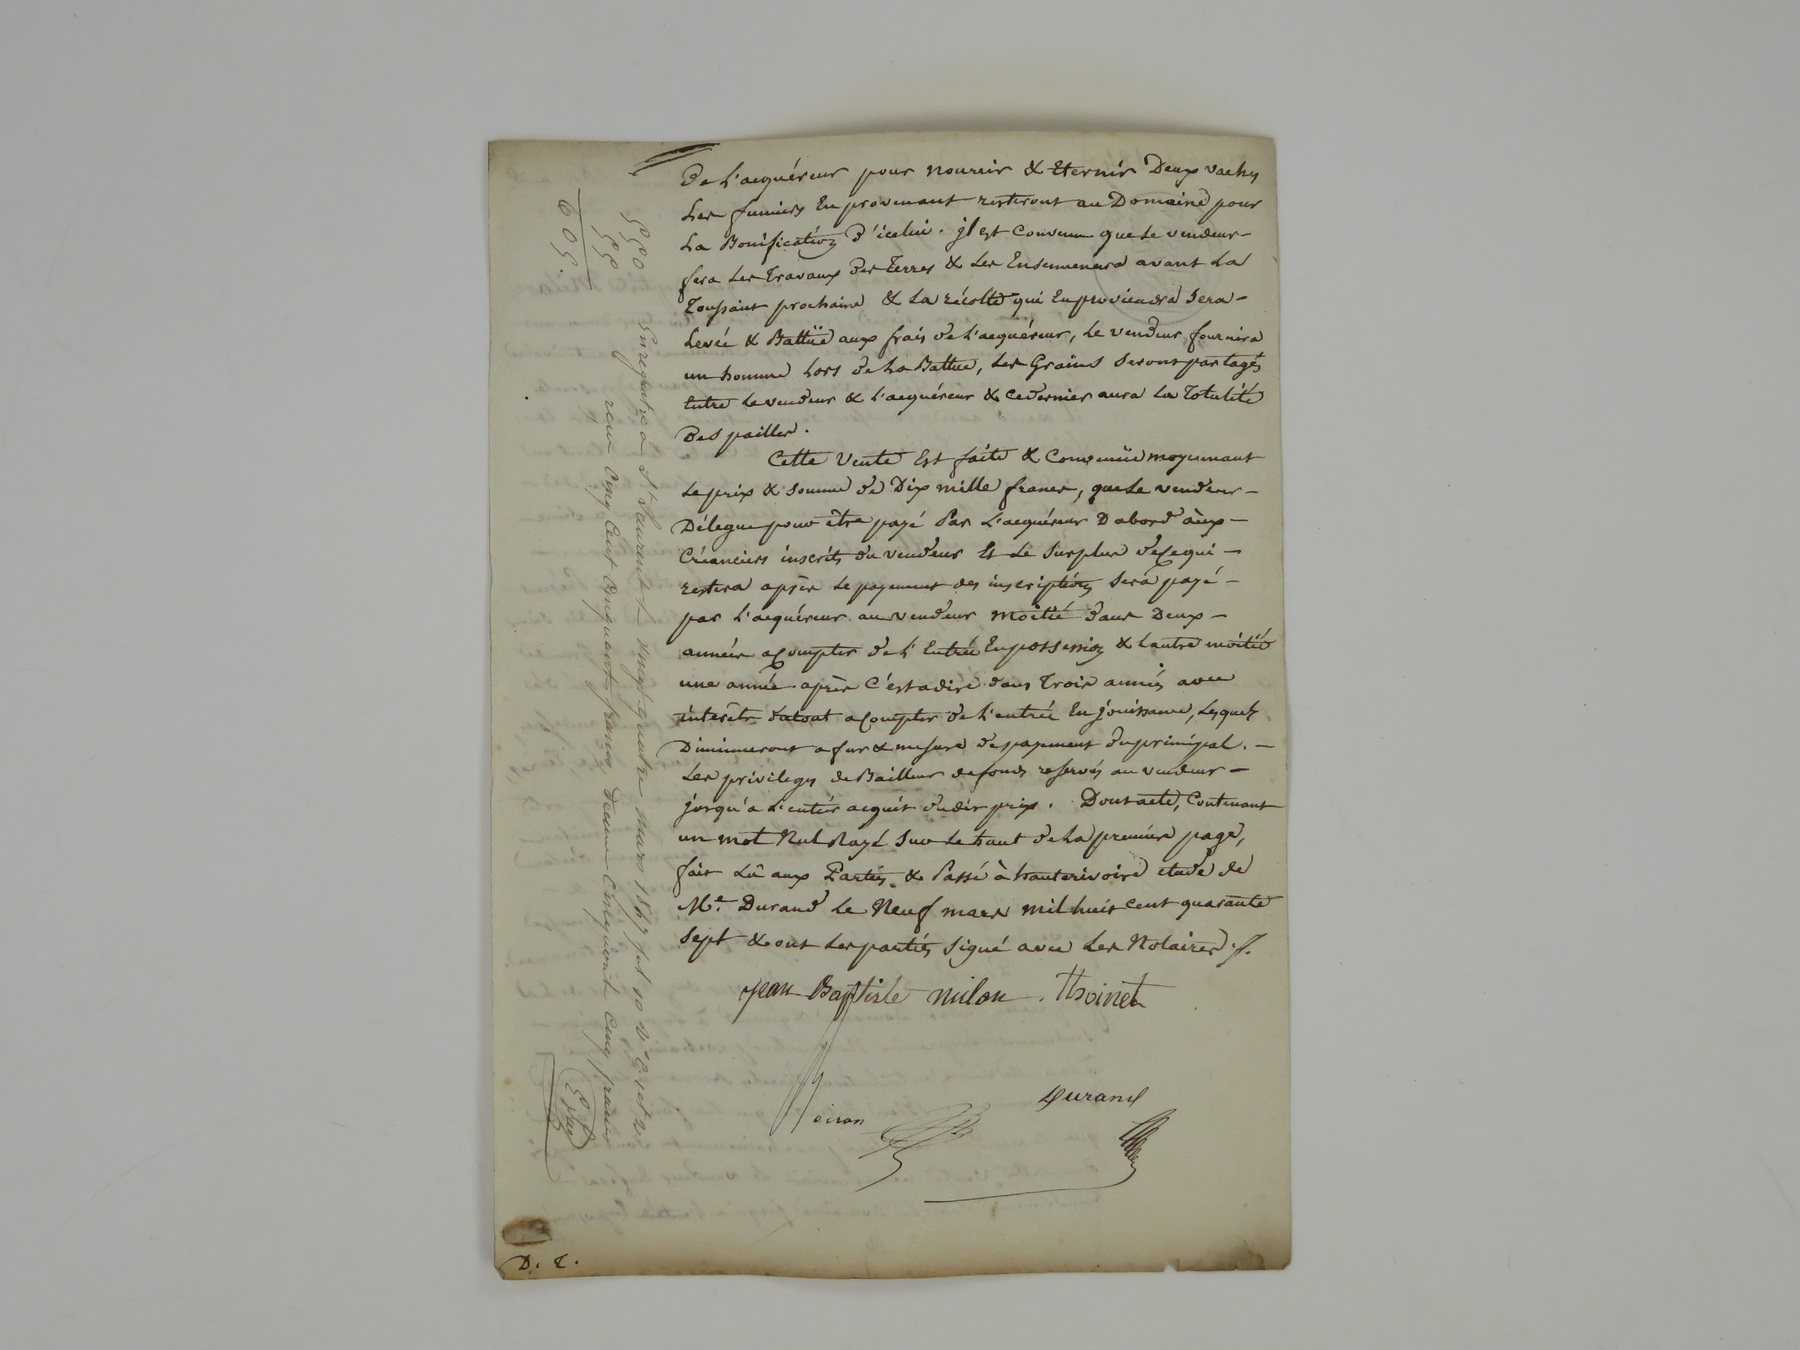 de l'acquéreur pour nourrir & Eternir Deux vaches
Les fumiers En provenant resteront au Domaine pour
La Bonification d'icelui. il est convenu que Le vendeur
fera Les Travaux des Terres & Les Ensemencera avant La
Toussaint prochaine & La récolte qui En proviendra Sera
Levée & Battüe aux frais de L'acquéreur, Le vendeur fournira
un homme Lors de La Battue, Les Grains Seront partagés
Entre Le vendeur & L'acquéreur & ce dernier aura La Totalité
Des pailles.
Cette Vente Est faite & Convenüe moyennant
Le prix & Somme de Dix mille francs, que Le vendeur
Délegue pour être payé Par L'acquéreur D'abord aux
Créanciers inscrits du vendeur Et Le Surplus de ce qui
restera après Le payement des inscriptions Sera payé
par L'acquéreur au vendeur moitié dans Deux
années a Compter de L'Entrée En possession & Lautre moitié
une année après C'est a dire dans Trois années avec
intérêts du tout a Compter de L'entrée En jouissance, Lesquels
Diminueront a fur & mesure de payement du principal.
Les privileges de Bailleur de fonds reservés au vendeur
jusqu'a L'entier acquit dudit prix. Dont acte, Contenant
un mot Nul Rayé Sur Le haut de La premiere page,
fait Lû aux Parties & Passé à hauterivoire etude de
Me. Durand Le Neuf mars mil huit cent quarante
Sept & ont Les parties Signé avec Les Notaires.
jean Baptiste milon. Thoinet
Durand
550
55
605.
Enregistré a St. Laurent Le vingt quatre mars 1847 fol 10 Vo C. 1 et 2
reçu Cinq Cent Cinquante francs, decime Cinquante Cinq francs
D. T.